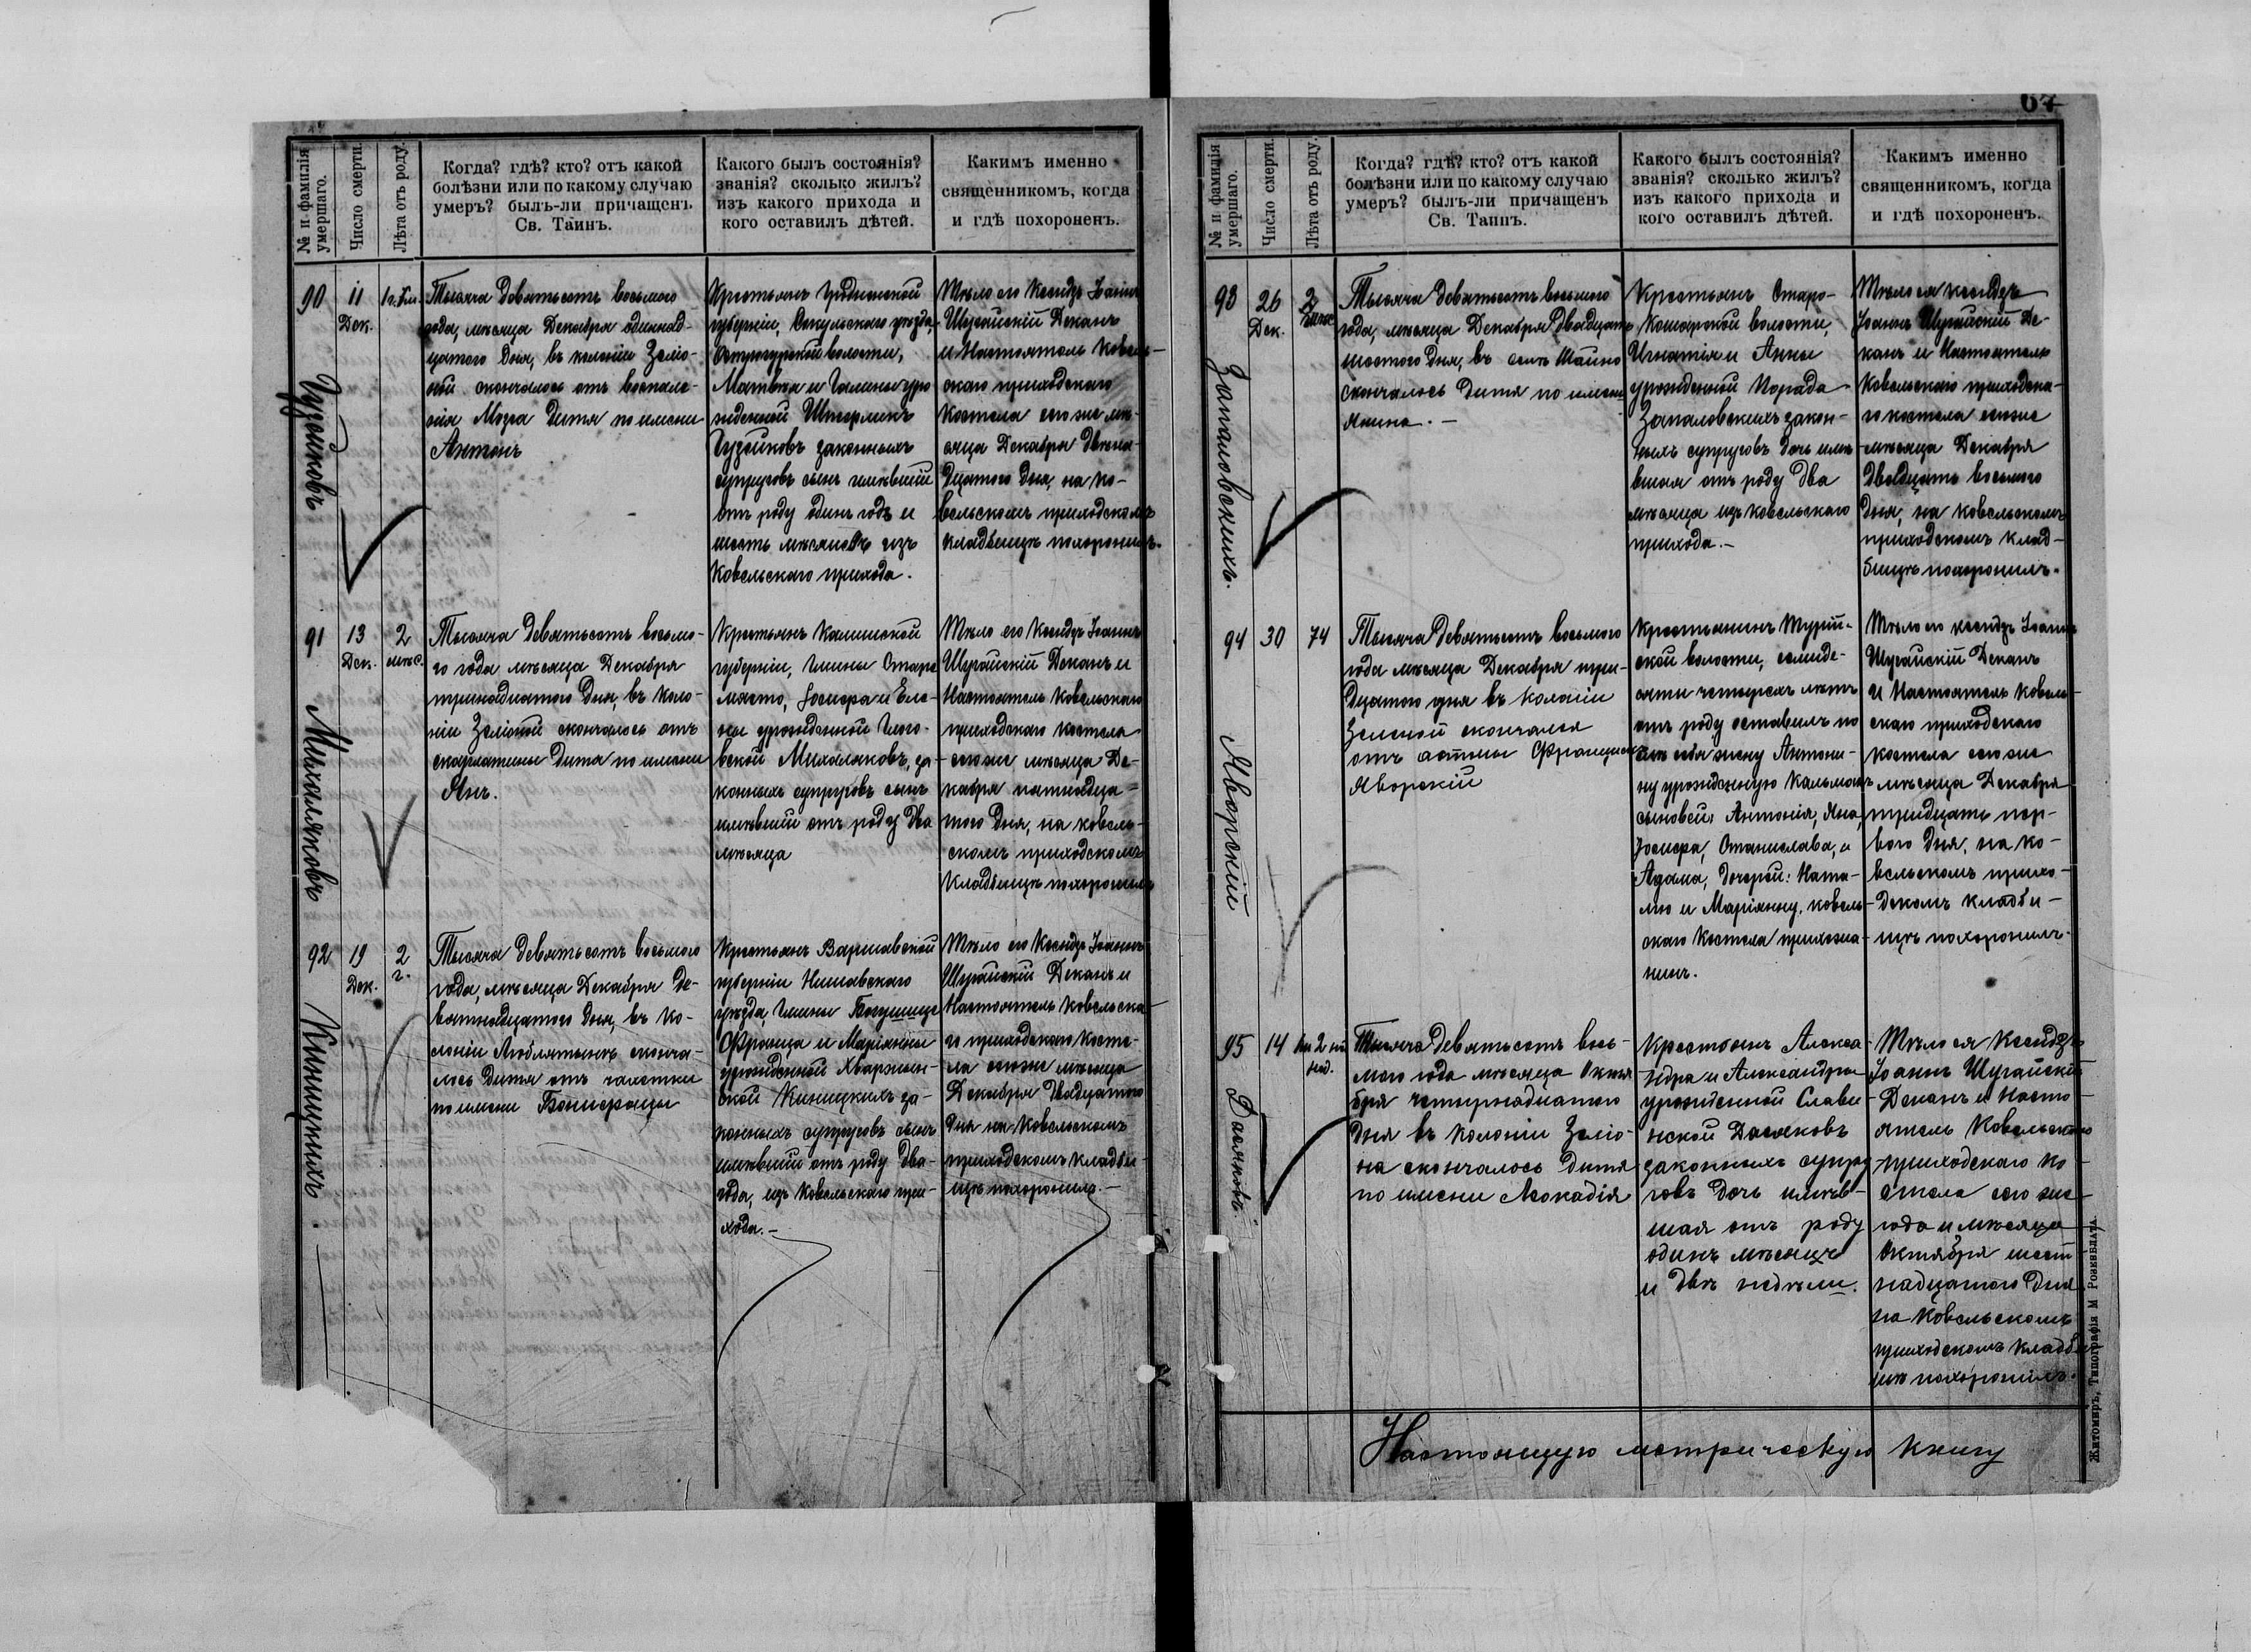 № и фамилія
умершаго.
Число смерти.
Лѣта отъ роду.
Когда? гдѣ? кто? отъ какой
болѣзни или по какому случаю
умеръ? былъ-ли причащенъ
Св. Таинъ.
Какого былъ состоянія?
званія? сколько жилъ?
изъ какого прихода и
кого оставилъ дѣтей.
Какимъ именно
священникомъ, когда
и гдѣ похороненъ.
90
Гузейковъ
11
Дек.
Тысяча девятьсотъ восьмого
года, мѣсяца Декабря одиннад-
цатого дня, въ колоніи Зеліо-
ной скончалось отъ воспале-
нія Мозга дитя по имени
Антонъ
Крестьянъ Гродненской
губерніи, Сокульскаго уѣзда,
волости,
Матвѣя и Галины уро
жденной
Гузейковъ законныхъ
супруговъ сынъ имѣвшій
отъ роду одинъ годъ и
шесть мѣсяцевъ изъ
Ковельскаго прихода.
Тѣло его Ксендзъ Іоаннъ
Шугайскій Деканъ
и Настоятель Ковель-
скаго приходскаго
костела того же мѣ-
сяца Декабря двѣна-
дцатого дня, на ко-
вельскомъ приходскомъ
кладбищѣ похоронилъ.
91
Михаляковъ
13
Дек.
2
мѣс.
Тысяча девятьсотъ восьмо-
го года мѣсяца Декабря
тринадцатого дня, въ коло-
ніи Зеліоной скончалось отъ
скарлатины дитя по имени
Янъ.
Крестьянъ Калишской
губерніи, Гмины Старе
място, Іосифа и Еле-
ны урожденной
Михаляковъ, за-
конныхъ супруговъ сынъ
имѣвшій отъ роду два
мѣсяца
Тѣло его Ксендзъ Іоаннъ
Шугайскій Деканъ и
Настоятель Ковельскаго
приходскаго костела
того же мѣсяца Де-
кабря пятнадца-
того дня, на ковель-
скомъ приходскомъ
кладбищѣ похоронилъ
92
Киницкихъ.
19
Дек.
2
г.
Тысяча девятьсотъ восьмого
года, мѣсяца Декабря де-
вятнадцатого дня, въ ко-
лоніи Люблятынѣ сконча-
лось дитя отъ чахотки
по имени Бонифацы
Крестьянъ Варшавской
губерніи Нешавскаго
уѣзда, Гмины
Франца и Маріянны
урожденной
Киницкихъ за-
конныхъ супруговъ сынъ
имѣвшій отъ роду два
года, изъ Ковельскаго при-
хода.-
Тѣло его Ксендзъ Іоаннъ
Шугайскій Деканъ и
Настоятель Ковельска-
го приходскаго косте-
ла того же мѣсяца
Декабря двадцатого
дня на Ковельскомъ
приходскомъ кладби-
щѣ похоронилъ.-
67
№ и фамилія
умершаго.
Число смерти.
Лѣта отъ роду.
Когда? гдѣ? кто? отъ какой
болѣзни или по какому случаю
умеръ? былъ-ли причащенъ
Св. Таинъ.
Какого былъ состоянія?
званія? сколько жилъ?
изъ какого прихода и
кого оставилъ дѣтей.
Какимъ именно
священникомъ, когда
и гдѣ похороненъ.
93
Запаловскихъ.
26
Дек.
2
Тысяча девятьсотъ восьмого
года, мѣсяца Декабря двадцать
шестого дня, въ селѣ Шайно
скончалось дитя по имени
Янина.-
Крестьянъ Старо-
Кошарской волости,
Игнатія и Анны
урожденной Порада
Запаловскихъ закон-
ныхъ супруговъ дочь имѣ
вшая отъ роду два
мѣсяца изъ ковельскаго
прихода.-
Тѣло ея ксендзъ
Іоаннъ Шугайскій Де-
канъ и Настоятель
Ковельскаго приходска-
го костела того же
мѣсяца Декабря
двадцать восьмого
дня, на ковельскомъ
приходскомъ клад-
бищѣ похоронилъ.
94
Яворскій
30
74
Тысяча девятьсотъ восьмого
года мѣсяца Декабря три-
дцатого дня въ колоніи
Зеліоной скончался
отъ астмы Францишекъ
Яворскій
Крестьянинъ Турій-
ской волости, семиде-
сяти четырехъ лѣтъ
отъ роду оставилъ по
слѣ себя жену Антони-
ну урожденную
сыновей: Антонія, Яна,
Іосифа, Станислава, и
Адама, дочерей: Ната-
лію и Маріянну, ковель-
скаго Костела прихожа-
нинъ.
Тѣло его ксендзъ Іоаннъ
Шугайскій Деканъ
и Настоятель Ковель-
скаго приходскаго
костела того же
мѣсяца Декабря
тридцать пер-
вого дня, на ко-
вельскомъ прихо-
дскомъ кладби-
щѣ похоронилъ.
95
Дасяковъ
14
Тысяча девятьсотъ вось-
мого года мѣсяца Октя
бря четырнадцатого
дня въ колоніи Зеліо-
на скончалось дитя
по имени Леокадія
Крестьянъ Алекса-
ндра и Александры
урожденной Слави-
нской Дасяковъ
законныхъ супру
говъ дочь имѣв-
шая отъ роду
одинъ мѣсяцъ
и двѣ недѣли.
Тѣло ея Ксендзъ
Іоаннъ Шугайскій
Деканъ и Насто-
ятель Ковельскаго
приходскаго ко-
стела того же
года и мѣсяца
Октября шест-
надцатого дня
на Ковельскомъ
приходскомъ кладби
щѣ похоронилъ.
Настоящую метрическую книгу
Житомиръ, Типографія М РОЗЕНБЛАТА.